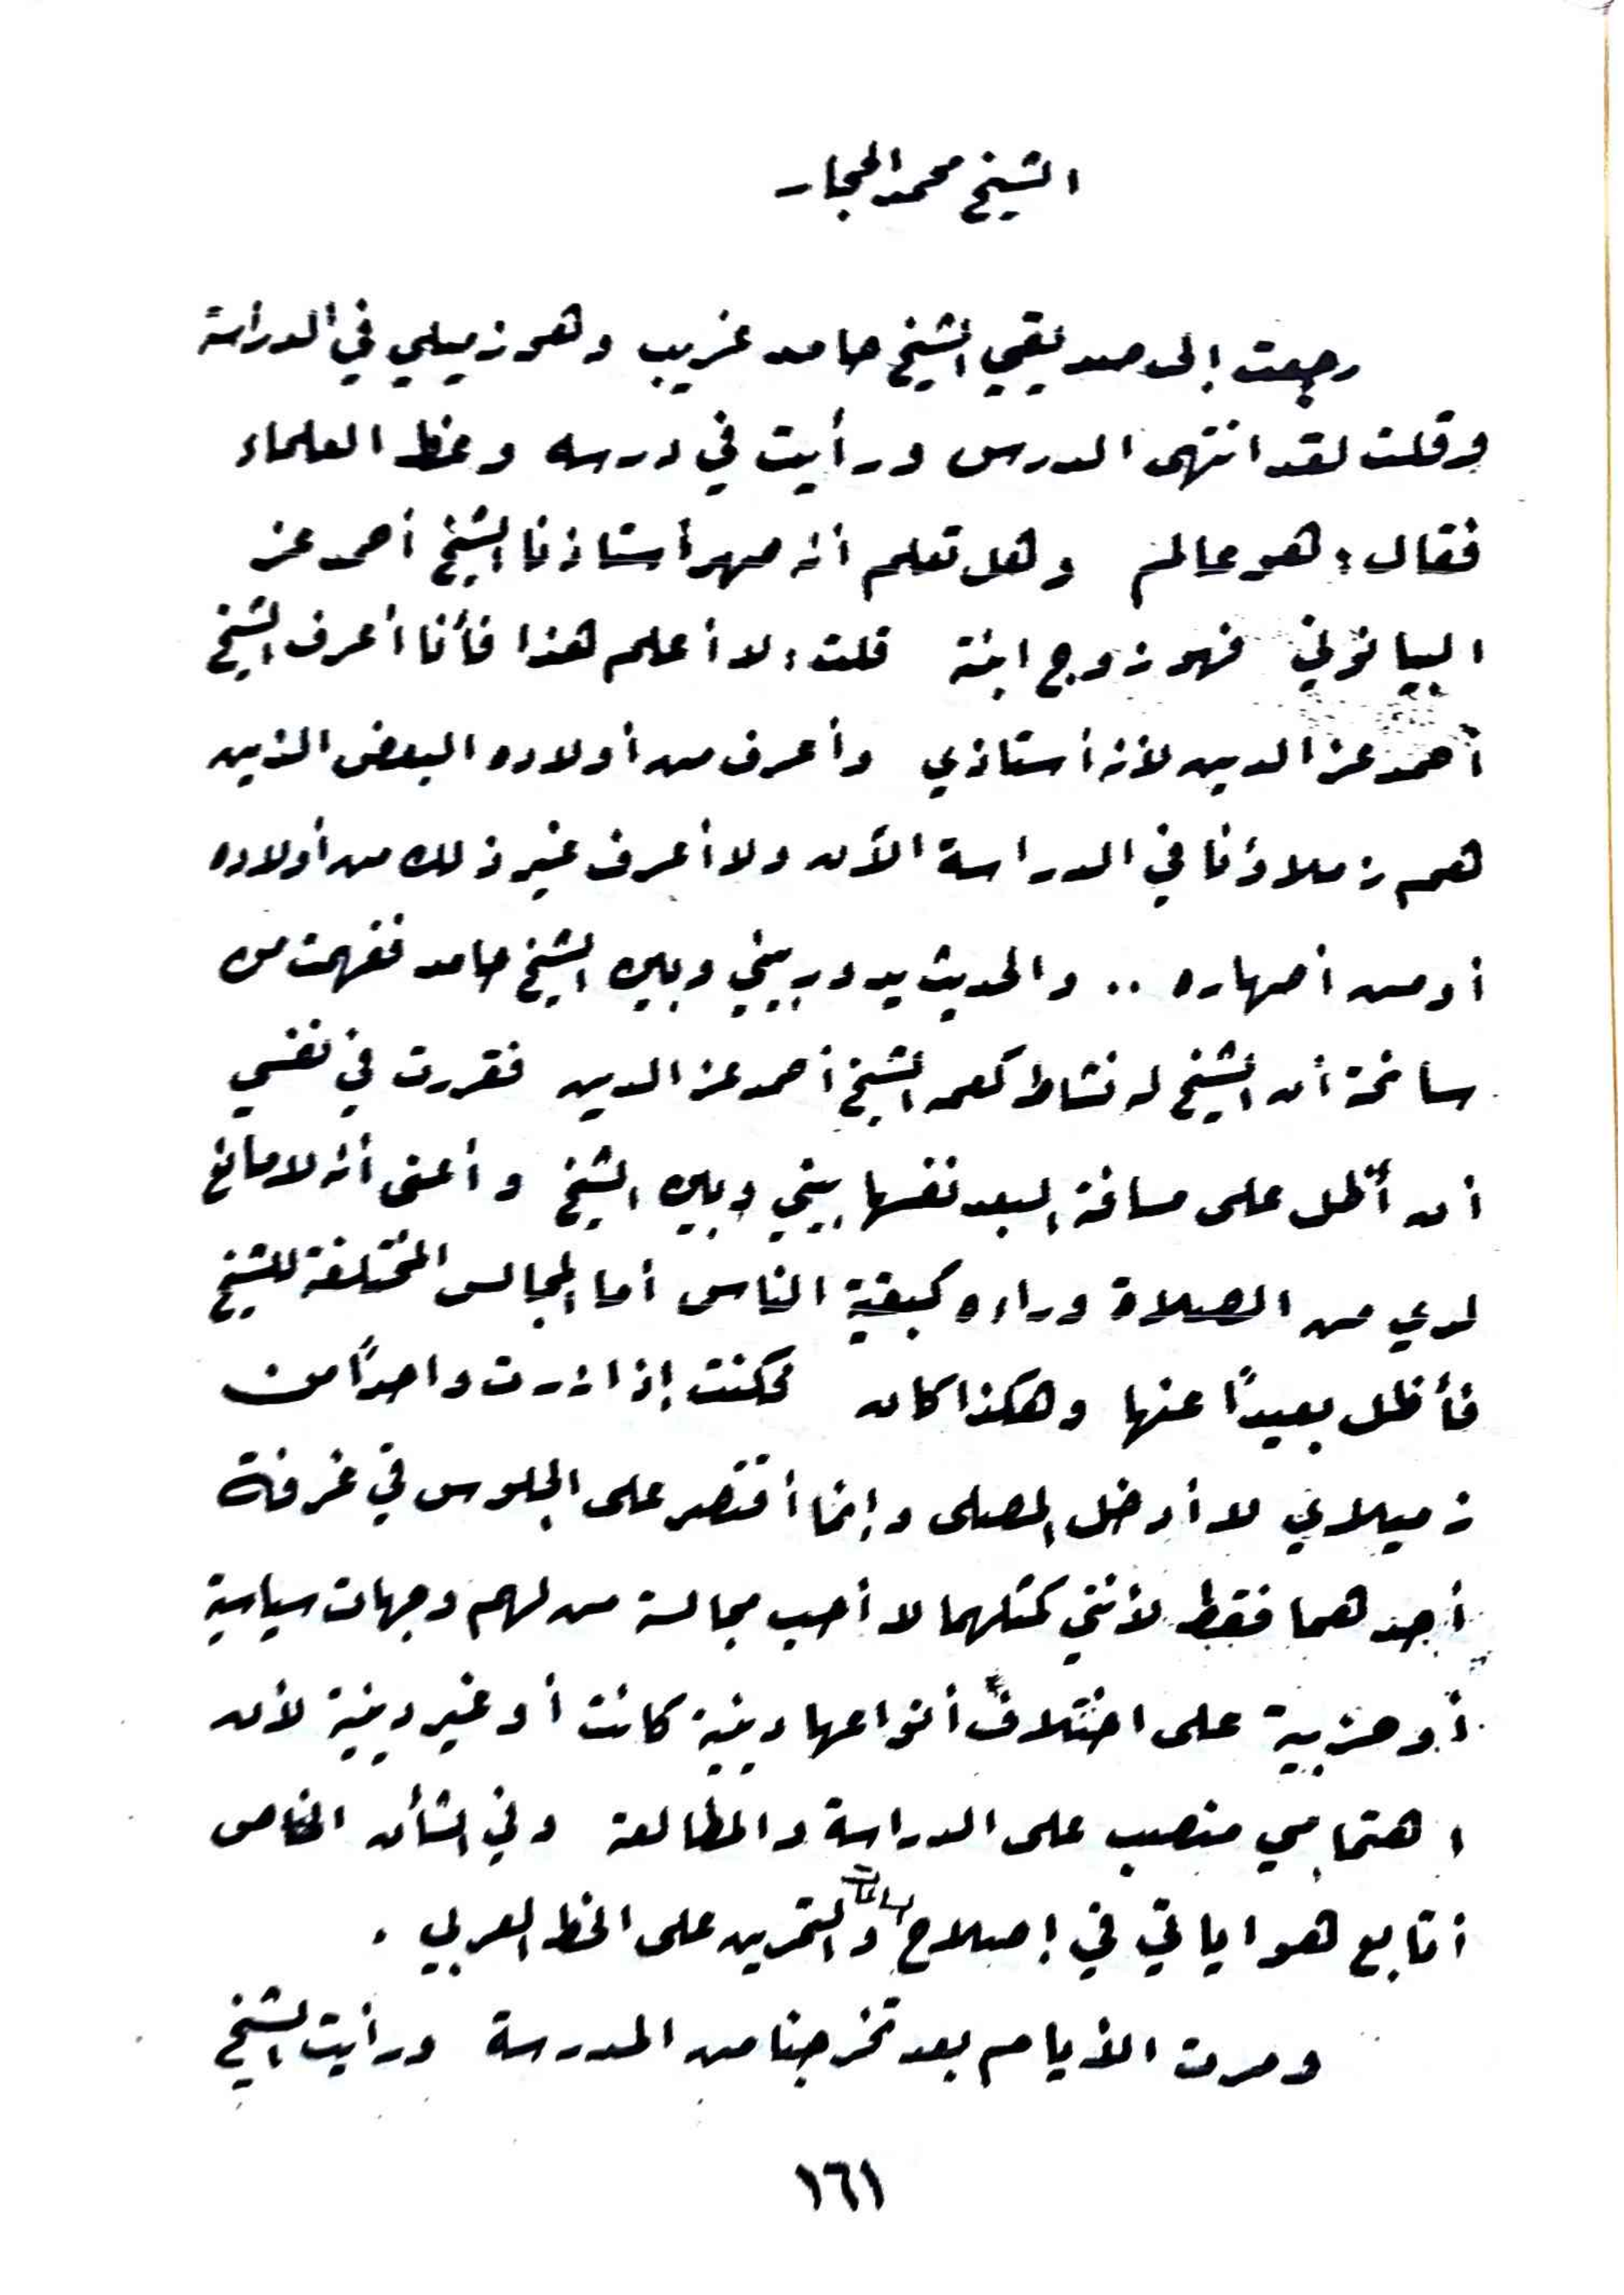 الشيخ محمد الحجار
رجعت إلى صديقي الشيخ حامد غريب وهو زميلي في الدراسة
وقلت لقد انتهى الدرس ورأيت في درسه وعظ العلماء
فقال: هو عالم وهل تعلم أنه صهر أستاذنا الشيخ أحمد عز
البيانوني فهو زوج ابنته قلت: لا أعلم هذا فأنا أعرف الشيخ
أحمد عز الدين لأنه أستاذي وأعرف من أولاده البعض الذين
هم زملاؤنا في الدراسة الآن ولا أعرف غير ذلك من أولاده
أو من أصهاره .. والحديث يدور بيني وبين الشيخ حامد ففهمت من
أن الشيخ له نشاط كعمه الشيخ أحمد عز الدين فقررت في نفسي
أن أظل على مسافة البعد نفسها بيني وبين الشيخ وأعني أنه لا مانع
لدي من الصلاة وراءه كبقية الناس أما المجالس المختلفة للشيخ
فأظل بعيداً عنها وهكذا كان فكنت إذا زرت واحداً من
زميلاي لا أدخل المصلى وإنما أقتصر على الجلوس في غرفة
أحدهما فقط لأنني كمثلهما لا أحب مجالسة من لهم وجهات سياسية
أو حزبية على اختلاف أنواعها دينية كانت أو غير دينية لأن
اهتمامي منصب على الدراسة والمطالعة وفي الشأن الخاص
أتابع هواياتي في إصلاح الساعات والتمرين على الخط العربي .
ومرت الأيام بعد تخرجنا من المدرسة ورأيت الشيخ
١٦١